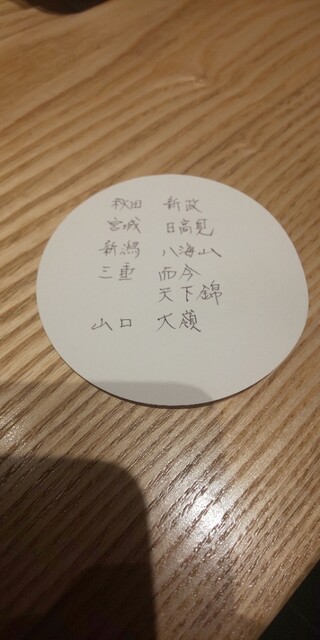 秋田 新政
宮城 日高見
新潟 八海山
三重 而今
天下錦
山口 大嶺